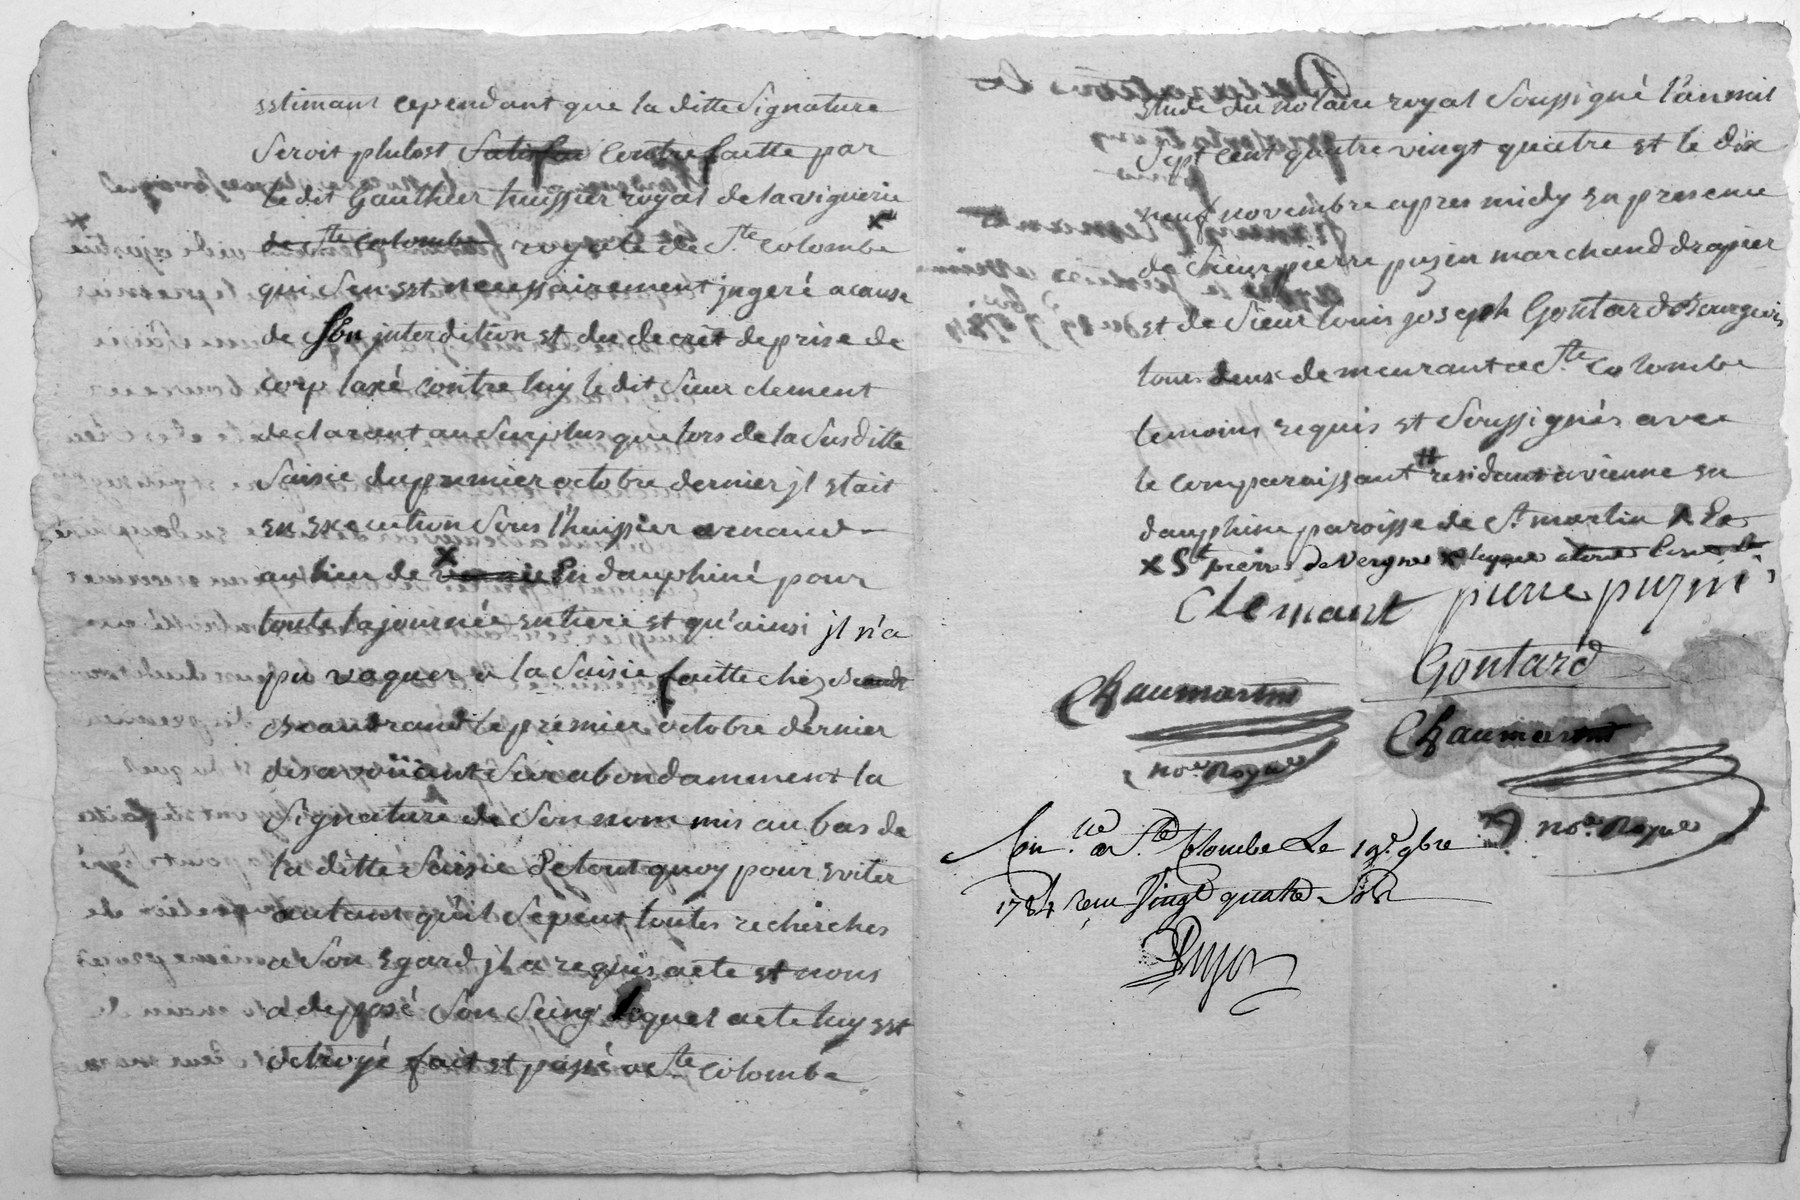 estimant cependant que la ditte Signature
Seroit plutost Satisfai contrefaitte par
le dit Gauthier huissier royal de la viguerie
de Ste Colombe royale de Ste Colombe x
qui S'en est necessairement jngeré a cause
de Son jnterdition et du decret de prise de
corp laxé contre luy le dit Sieur clement
declarant au Surplus que lors de la Susditte
Saisie du premier octobre dernier jl etait
en execution Sous l'huissier arnaud
au lieu de x En dauphiné pour
toute la journée entiere et qu'ainsi jl n'a
pu vaquer a la Saisie faitte chez
beaudrand le premier octobre dernier
desavoüant Surabondamment la
Signature de Son nom mis au bas de
la ditte Saisie De tout quoy pour eviter
autant qu'il Se peut toutes recherches
a Son egard jl a requis acte et nous
a deposé Son Seing lequel acte luy est
octroyé fait et passé a Ste Colombe
etude du notaire royal Soussigné l'an mil
Sept cent quatre vingt quatre et le dix
neuf novembre apres midy en presence
de Sieur pierre puzin marchand drapier
et de Sieur louis joseph Goutard Bourgeois
tous deux demeurant a Ste Colombe
temoins requis et Soussignés avec
le comparaissant # residant a vienne en
dauphine paroisse de St martin
x St pierre de Vergne x
Clemant pierre puzin
Goutard
Chaumartin
Chaumartin
nore Royal
nore Royal
Conlle a Ste Colombe Le 19e 9bre
1784 recu Vingt quatre Sols
Pujol